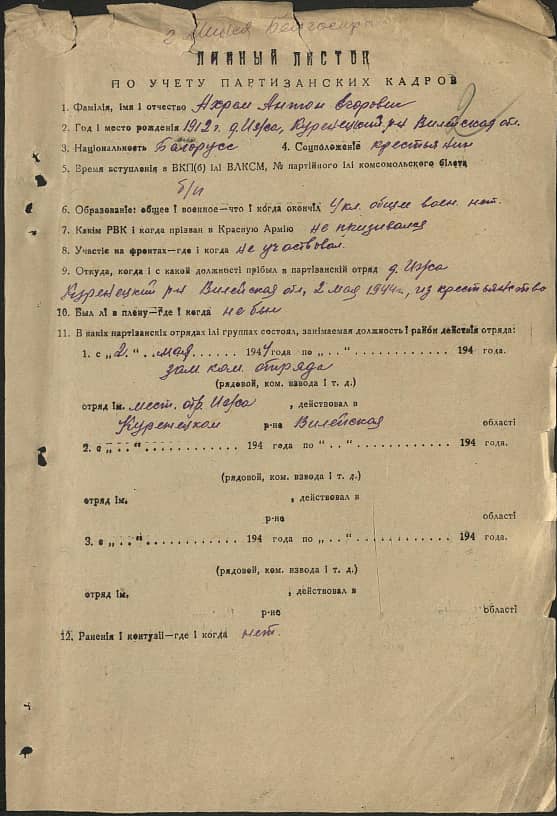 г Минск Белгосар
ЛИЧНЫЙ ЛИСТОК
ПО УЧЕТУ ПАРТИЗАНСКИХ КАДРОВ
1. Фамілія, імя і отчество Ахрем Антон Егорович
2. Год і место рождения 1912 г. д. Ижа, Куренецкий р-н Вилейская об.
3. Національность Белорусс 4. Соцположеніе Крестьянин
5. Время вступления в ВКП(б) ілі ВЛКСМ, № партійного ілі комсомольского білета
б/п
6. Образованіе: общее і военное—что і когда окончіл 4 кл. общее воен. нет.
7. Какім РВК і когда прізван в Красную Армію не призивался
8. Участіе на фронтах—где і когда не участвовал.
9. Откуда, когда і с какой должності прібыл в партізанскій отряд д. Ижа
Куренецкий р-н Вилейская об., 2 мая 1944 г., из крестьянство
10. Был лі в плену—где і когда не был
11. В какіх партізанскіх отрядах ілі группах состоял, занимаемая должность і район действія отряда:
1. с „2“ . . мая . . . . . . . 1944 года по „ . . “ . . . . . . . . . . . . 194 года.
зам ком. отряда
(рядовой, ком. взвода і т. д.)
отряд ім. мест. отр. Ижа , действовал в
Куренецком р-не Вилейская області
2. с „ . . “ . . . . . . . . . . . 194 года по „ . . “ . . . . . . . . . . . . 194 года.
(рядовой, ком. взвода і т. д.)
отряд ім. , действовал в
р-не області
3. с „ . . “ . . . . . . . . . . . 194 года по „ . . “ . . . . . . . . . . . . 194 года.
(рядовой, ком. взвода і т. д.)
отряд ім. , действовал в
р-не області
12. Раненія і контузіі—где і когда нет.